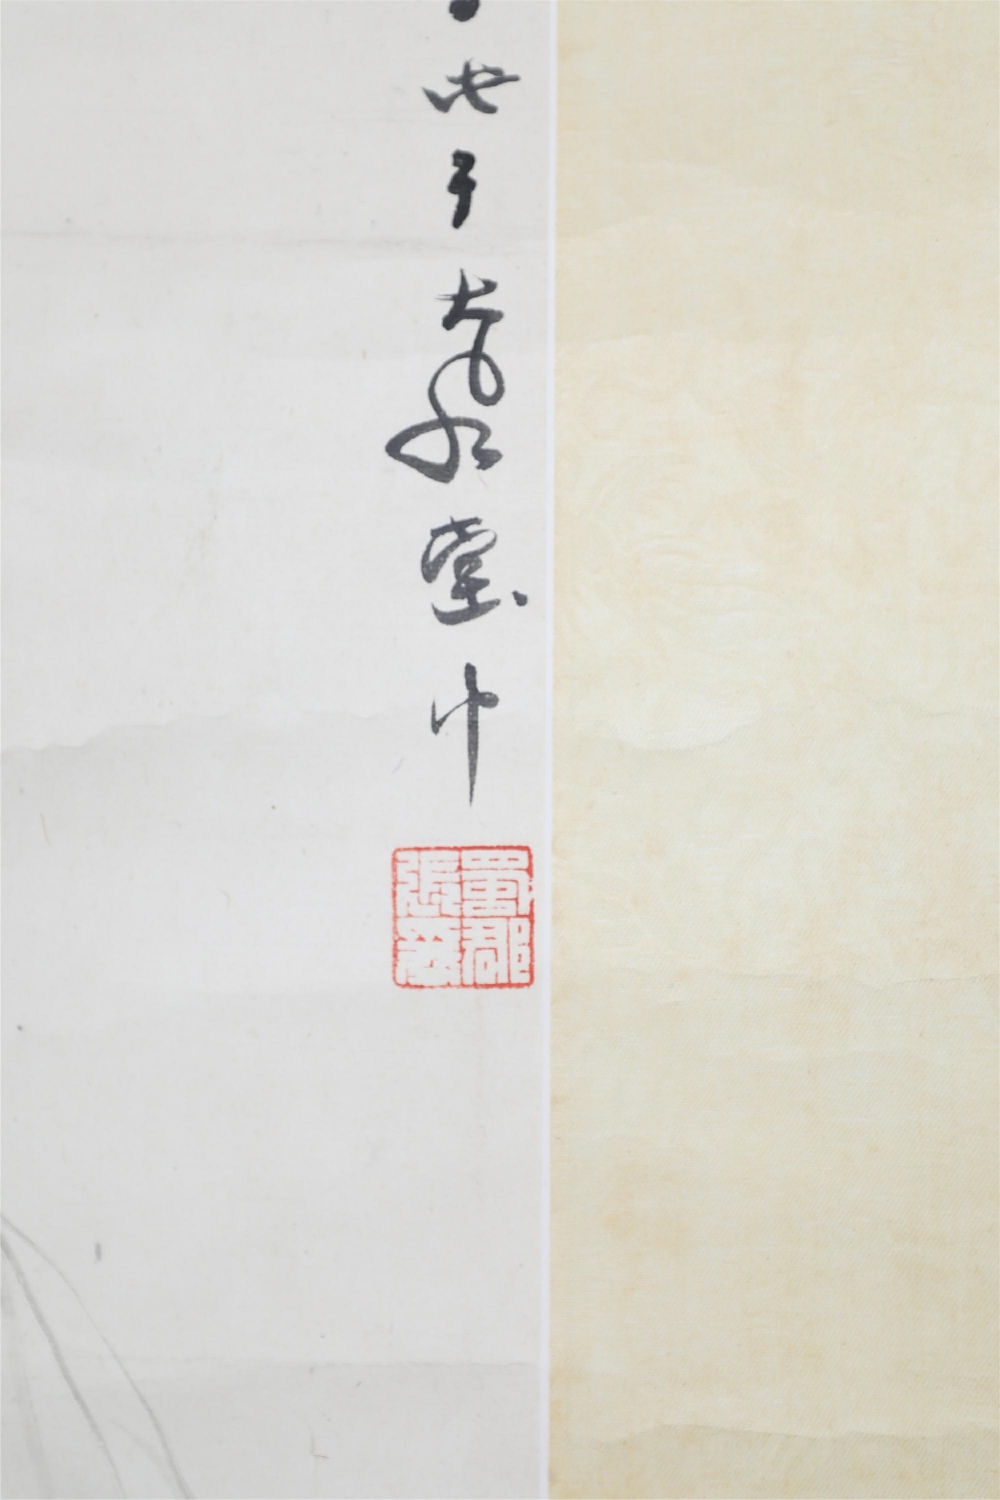 此于大風堂中
蜀郡
張爰